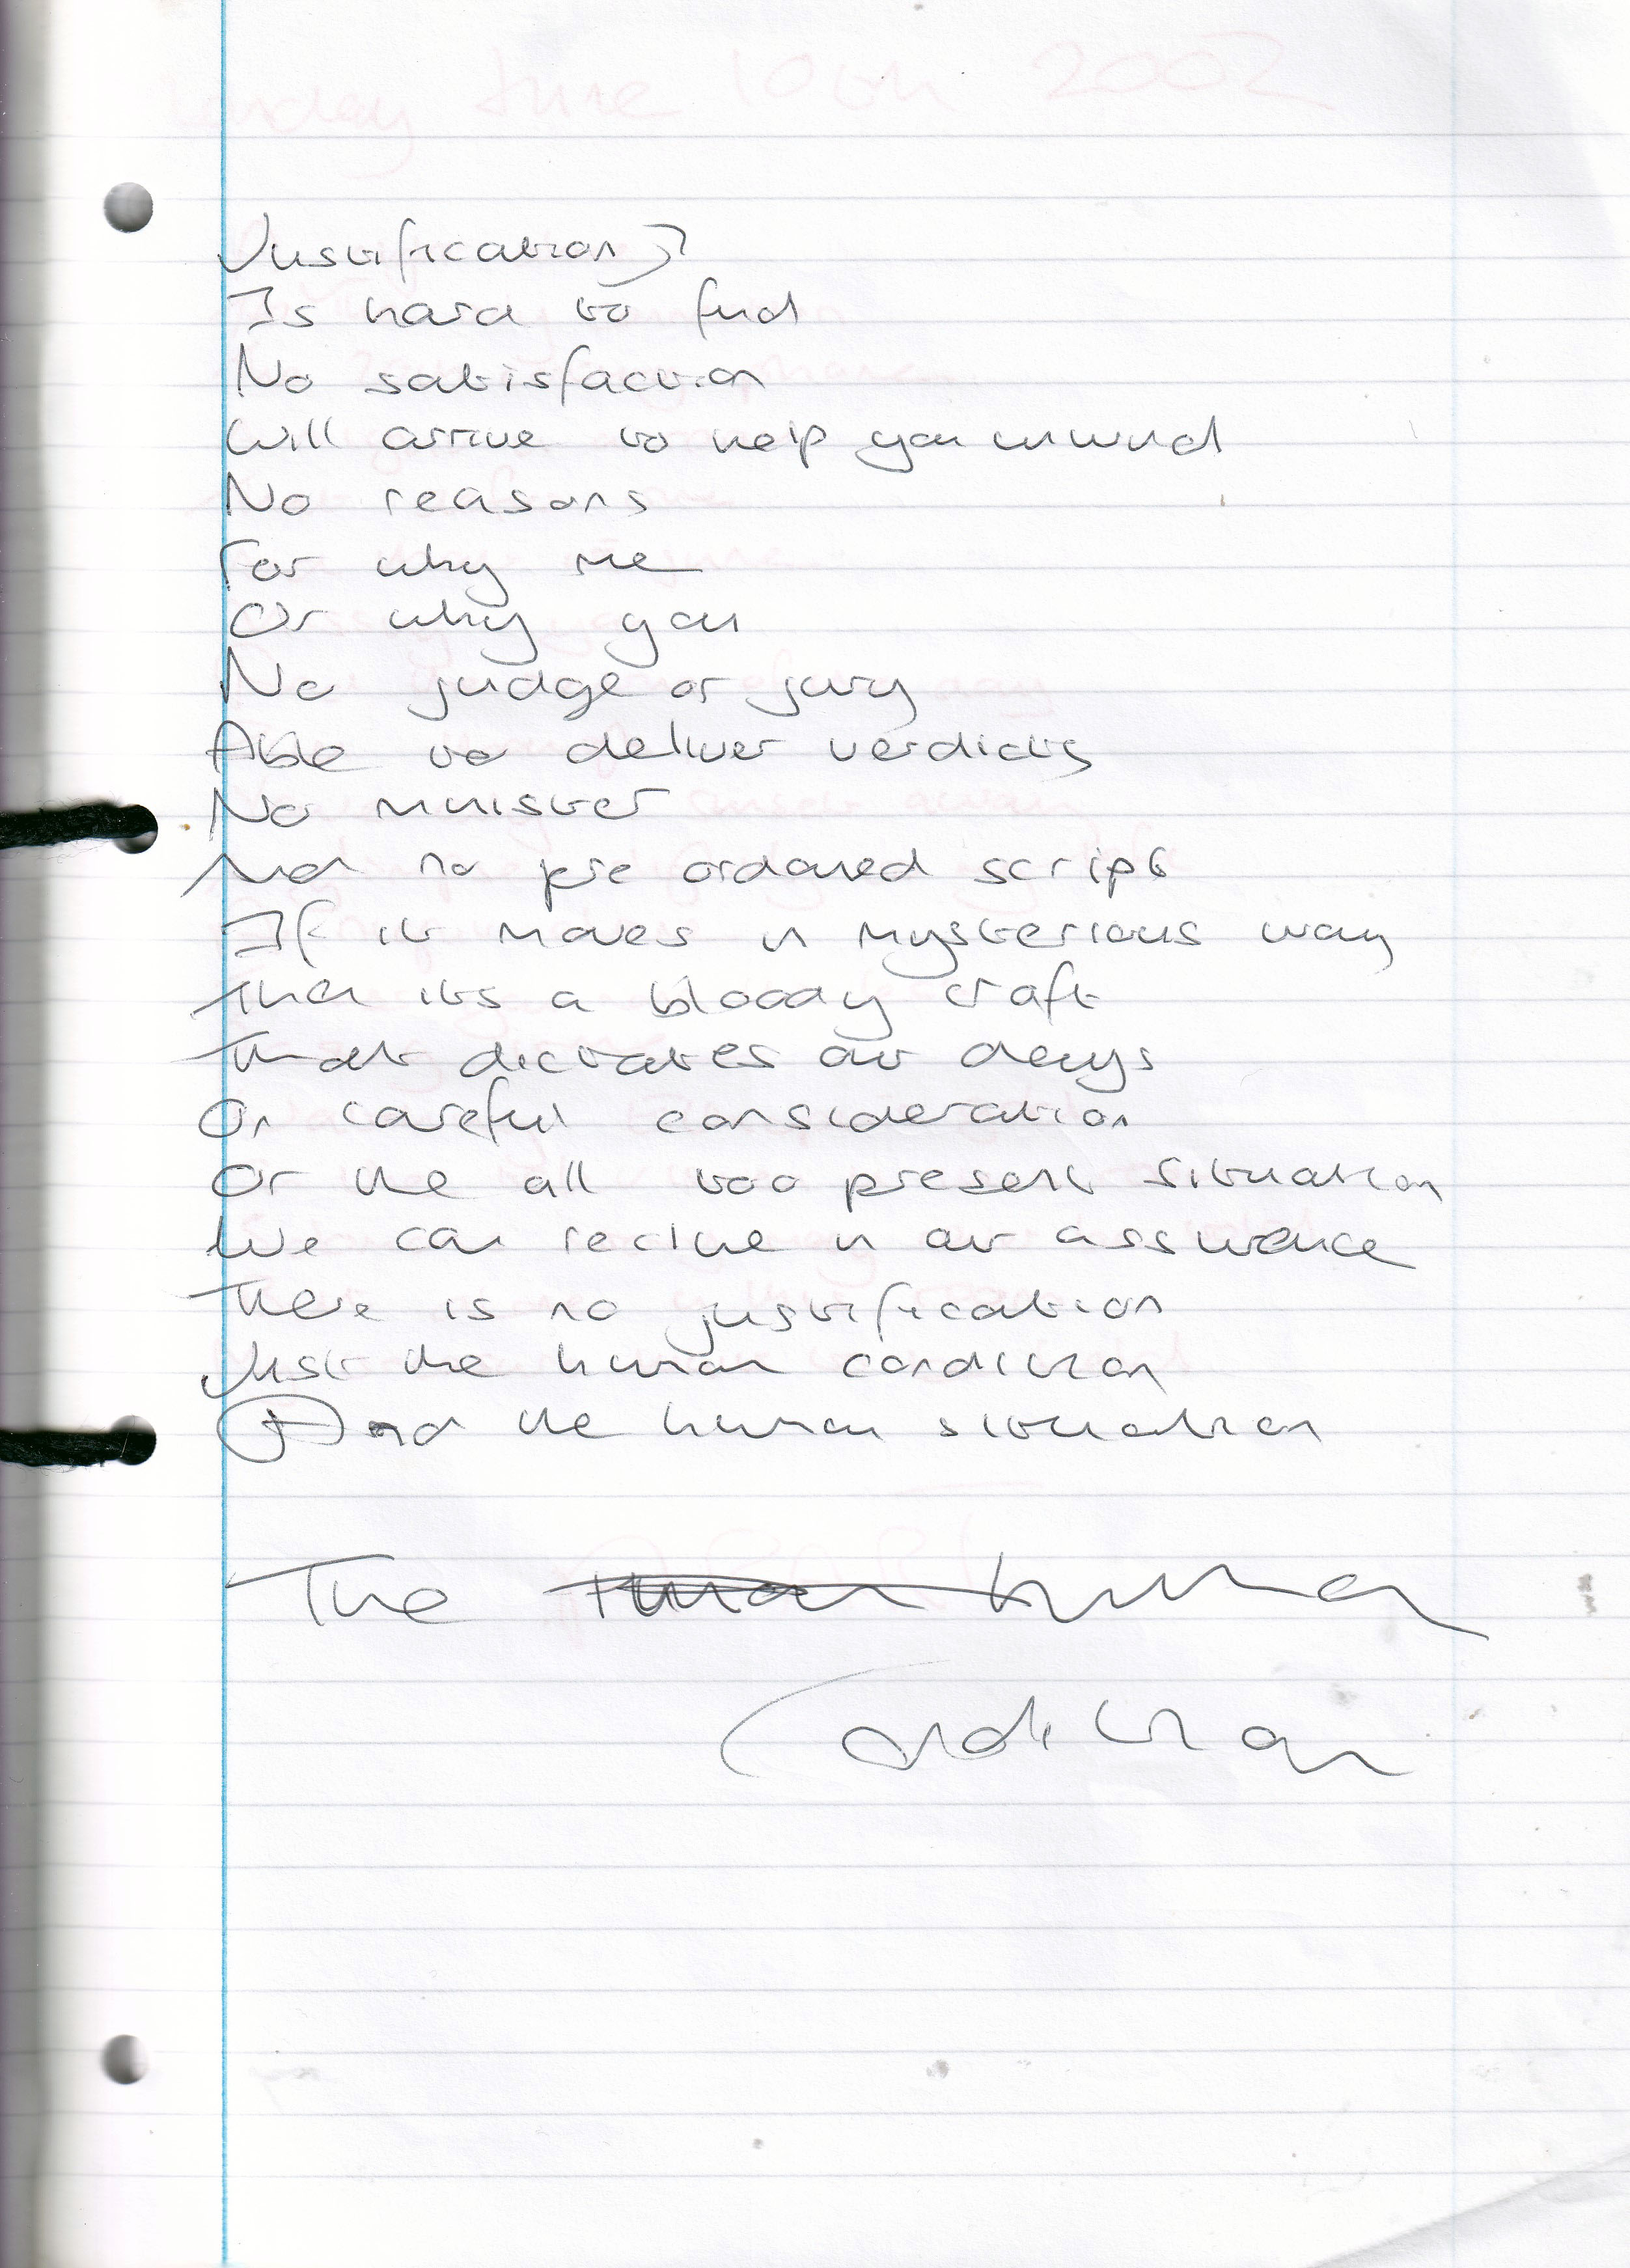 June 10th 2002
Justification?
Is hard to find
No satisfaction
Will arrive to help you unwind
No reasons
For why me
Or why you
No judge or jury
Able to deliver verdicts
No minister
And no pre ordained script
If it moves in mysterious way
Then its a bloody craft
That dictates our days
On careful consideration
Or the all too present situation
We can recline in our assurance
There is no justification
Just the human condition
And the human situation
The human
Condition